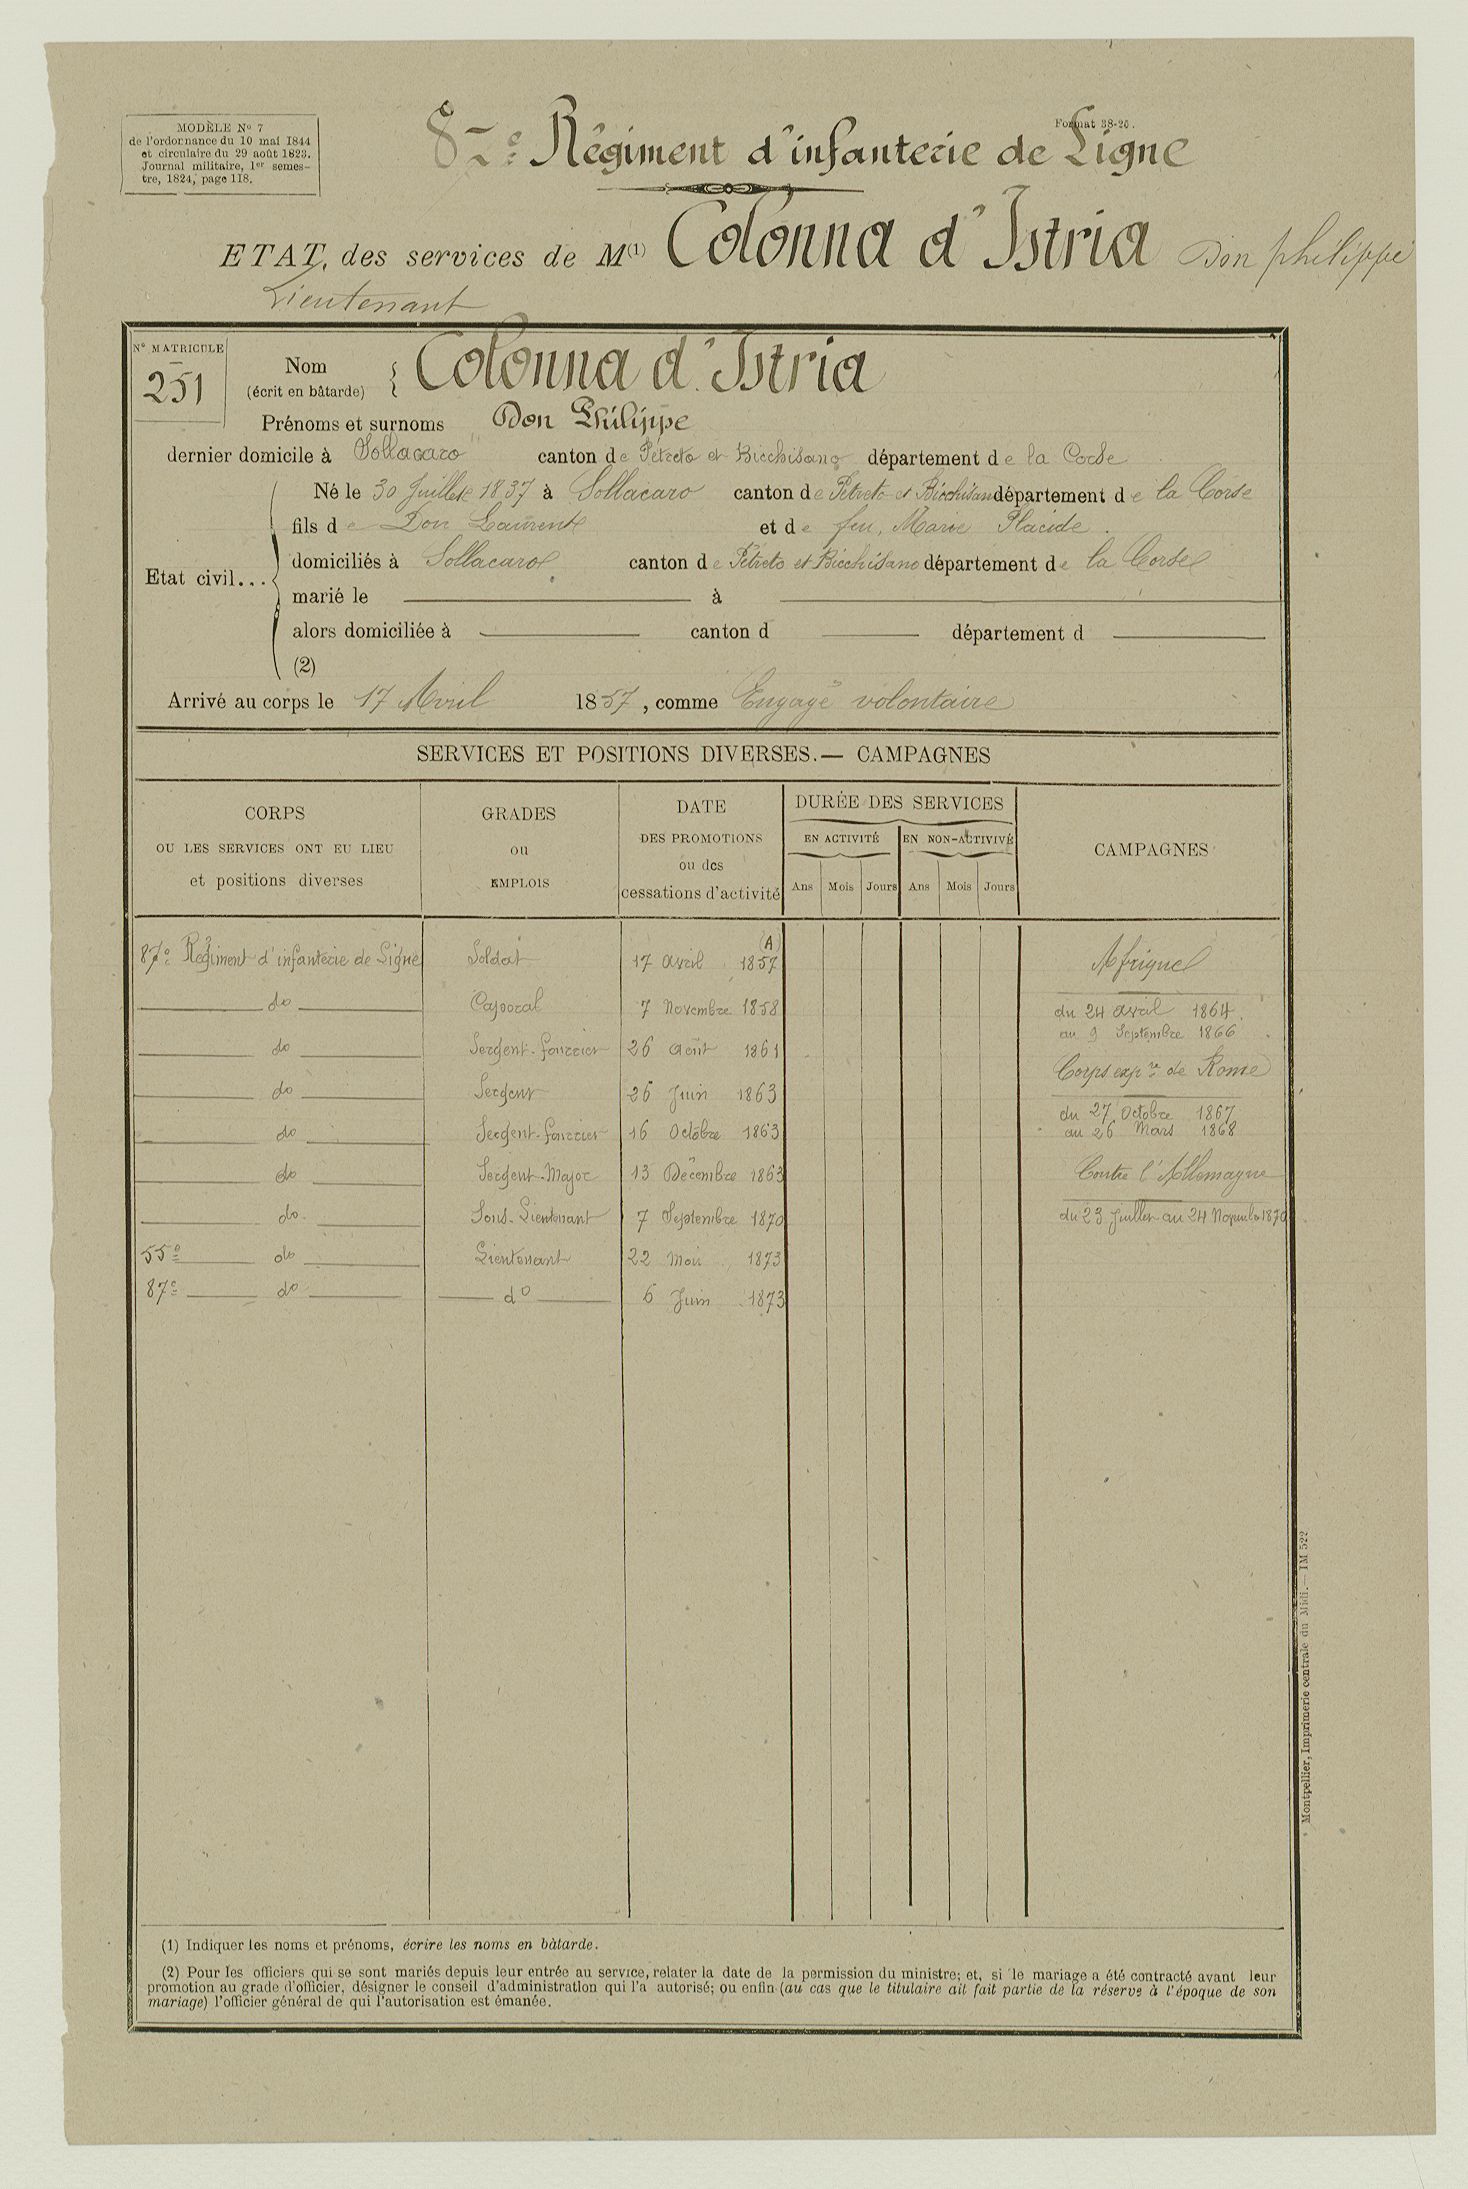 MODÈLE Nº 7
de l'ordonnance du 10 mai 1844
et circulaire du 29 août 1823.
Journal militaire, 1er semes-
tre, 1824, page 118.
Format 38-26.
87e Régiment d'infanterie de Ligne
ETAT, des services de M(1) Colonna d'Istria Don philippe
Lieutenant
Nº MATRICULE
251
Nom
(écrit en bâtarde)
Colonna d'Istria
Prénoms et surnoms Don Philippe
dernier domicile à Sollacaro canton de Pétreto et Bicchisano département de la Corse
Né le 30 Juillet 1837 à Sollacaro canton de Pétreto et Bicchisano département de la Corse
fils de Don Laurent et de feu, Marie Placide.
Etat civil...
domiciliés à Sollacaro canton de Pétreto et Bicchisano département de la Corse
marié le à
alors domiciliée à canton d département d
(2)
Arrivé au corps le 17 Avril 1857, comme Engagé volontaire
SERVICES ET POSITIONS DIVERSES.— CAMPAGNES
CORPS
OU LES SERVICES ONT EU LIEU
et positions diverses
GRADES
ou
EMPLOIS
DATE
DES PROMOTIONS
ou des
cessations d'activité
DURÉE DES SERVICES
EN ACTIVITÉ EN NON-ACTIVIVÉ
Ans Mois Jours Ans Mois Jours
CAMPAGNES
87e Régiment d'infanterie de Ligne Soldat 17 avril 1857 (A)
do Caporal 7 Novembre 1858
do Sergent-fourrier 26 Août 1861
do Sergent 26 Juin 1863
do Sergent-fourrier 16 Octobre 1863
do Sergent-Major 13 Décembre 1863
do Sous-Lieutenant 7 Septembre 1870
55e do Lieutenant 22 Mai 1873
87e do do 6 Juin 1873
Afrique
du 24 avril 1864.
au 9 Septembre 1866
Corps expre de Rome
du 27 Octobre 1867
au 26 Mars 1868
Contre l'Allemagne
du 23 Juillet au 24 Novembre 1870
(1) Indiquer les noms et prénoms, écrire les noms en bâtarde.
(2) Pour les officiers qui se sont mariés depuis leur entrée au service, relater la date de la permission du ministre; et, si le mariage a été contracté avant leur
promotion au grade d'officier, désigner le conseil d'administration qui l'a autorisé; ou enfin (au cas que le titulaire ait fait partie de la réserve à l'époque de son
mariage) l'officier général de qui l'autorisation est émanée.
Montpellier, Imprimerie centrale du Midi.— IM 522